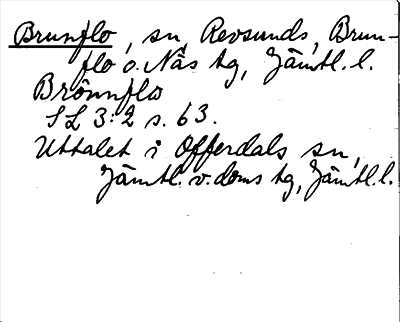 Brunflo, sn, Revsunds, Brun-
flo o. Näs tg, Jämtl. l.
Brônnflo
SL 3:2 s. 63.
Uttalet i Offerdals sn,
Jämtl. v. doms tg, Jämtl. l.